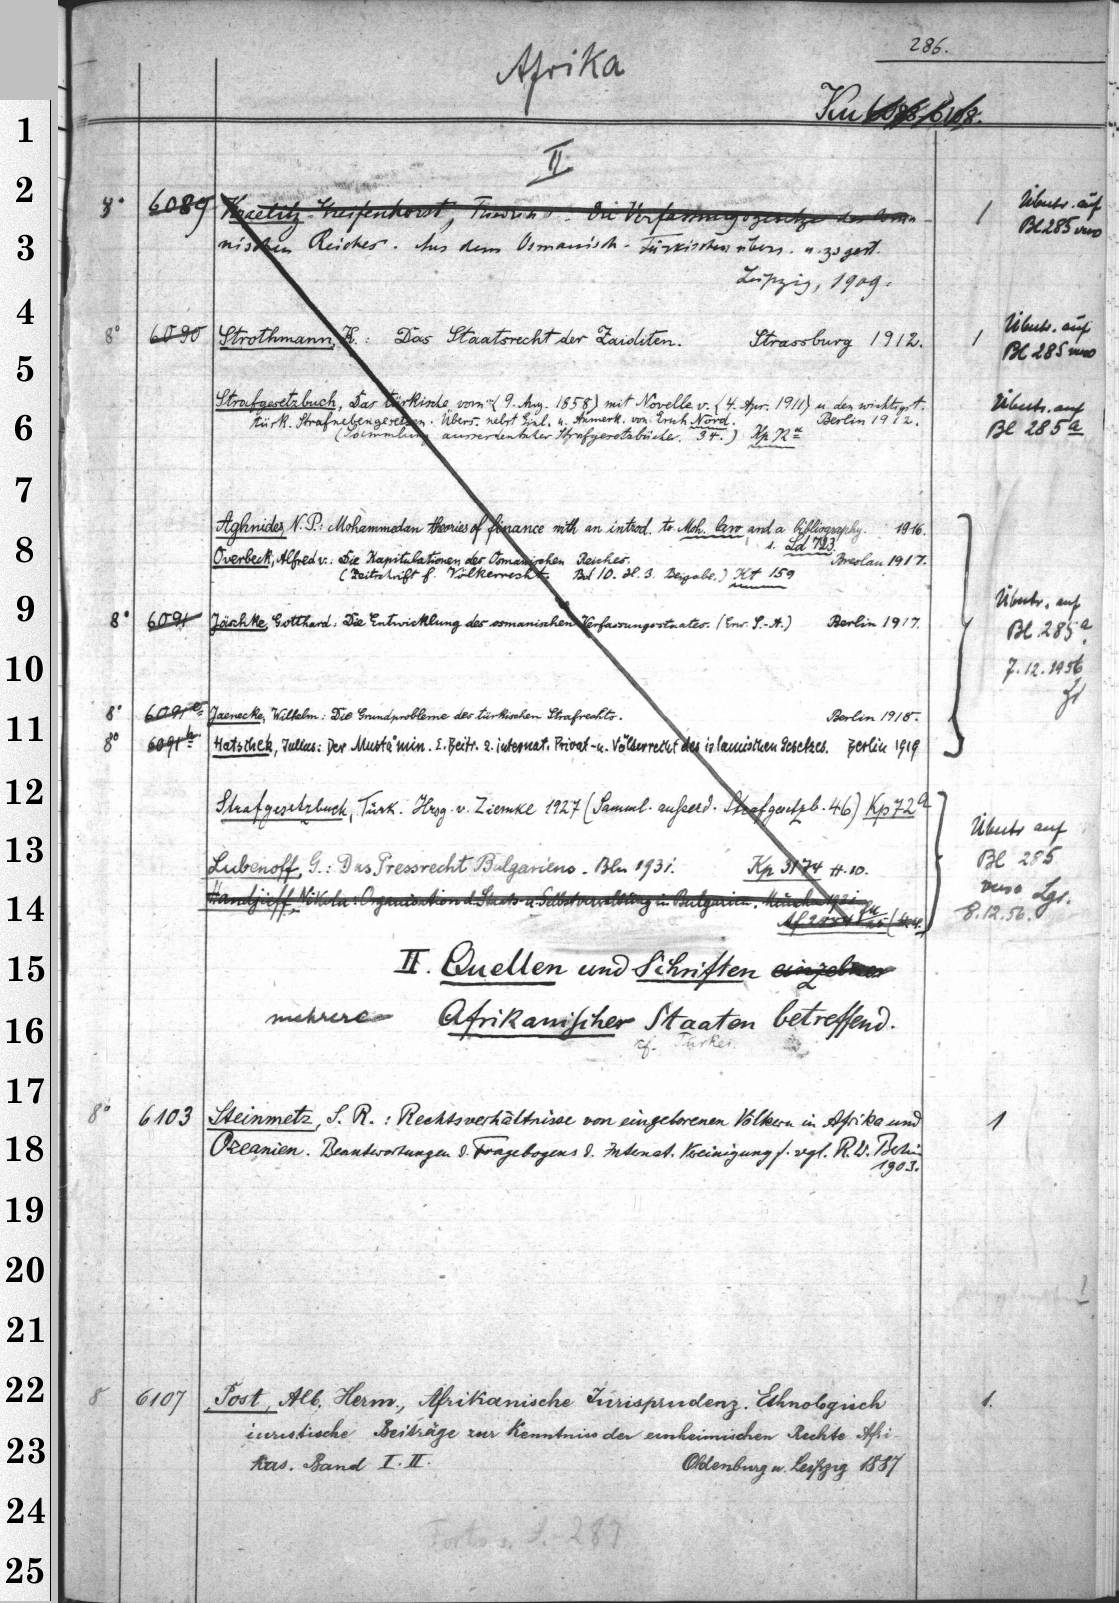 286.
Afrika
Ku 6088-6108.
II
8° 6089 Kraelitz-Greifenhorst, Die Verfassungsgesetze des Osma-
nischen Reiches. Aus dem Osmanisch-Türkischen übers. u. zsgest.
Leipzig, 1909.
1 Übertr. auf
Bl 285 verso
8° 6090 Strothmann, R.: Das Staatsrecht der Zaiditen. Strassburg 1912.
1 Übertr. auf
Bl 285 verso
Strafgesetzbuch, Das türkische vom (9. Aug. 1858) mit Novelle v. (4. Apr. 1911) u. den wichtigst.
türk. Strafnebengesetzen. Übers. nebst Einl. u. Anmerk. von Erich Nord. Berlin 1912.
(Sammlung ausserdeutscher Strafgesetzbücher. 34.) Kp 72a
Übertr. auf
Bl 285a
Aghnides, N. P.: Mohammedan theories of finance with an introd. to Moh. law and a bibliography. 1916.
s. Ld 723.
Overbeck, Alfred v.: Die Kapitulationen des Osmanischen Reiches. Breslau 1917.
(Zeitschrift f. Völkerrecht. Bd 10. H. 3. Beigabe.) Kt 159
8° 6091 Jäschke, Gotthard: Die Entwicklung des osmanischen Verfassungsstaates. Berlin 1917.
Übertr. auf
Bl 285a.
7.12.1956
8° 6091a Jaenecke, Wilhelm: Die Grundprobleme des türkischen Strafrechts. Berlin 1918.
8° 6091b Hatschek, Julius: Der Musta'min. E. Beitr. z. internat. Privat- u. Völkerrecht des islamischen Gesetzes. Berlin 1919
Strafgesetzbuch, Türk. Hrsg. v. Ziemke 1927 (Samml. außerd. Strafgesetzb. 46) Kp 72a
Lubenoff, G.: Das Pressrecht Bulgariens. Bln 1931. Kp 3174 H. 10.
Handjieff, Nikola: Organisation d. Staats- u. Selbstverwaltung in Bulgarien. München 1931.
Übertr auf
Bl 285
verso Lgr.
8.12.56.
II. Quellen und Schriften einzelner
mehrere Afrikanischer Staaten betreffend.
cf. Türkei
8° 6103 Steinmetz, S. R.: Rechtsverhältnisse von eingeborenen Völkern in Afrika und 1
Ozeanien. Beantwortungen d. Fragebogens d. Internat. Vereinigung f. vgl. R.W. Berlin
1903.
8 6107 Post, Alb. Herm., Afrikanische Jurisprudenz. Ethnologisch 1.
juristische Beiträge zur Kenntniss der einheimischen Rechte Afri-
kas. Band I. II. Oldenburg u. Leipzig 1887
Forts. s. S. 287
1
2
3
4
5
6
7
8
9
10
11
12
13
14
15
16
17
18
19
20
21
22
23
24
25